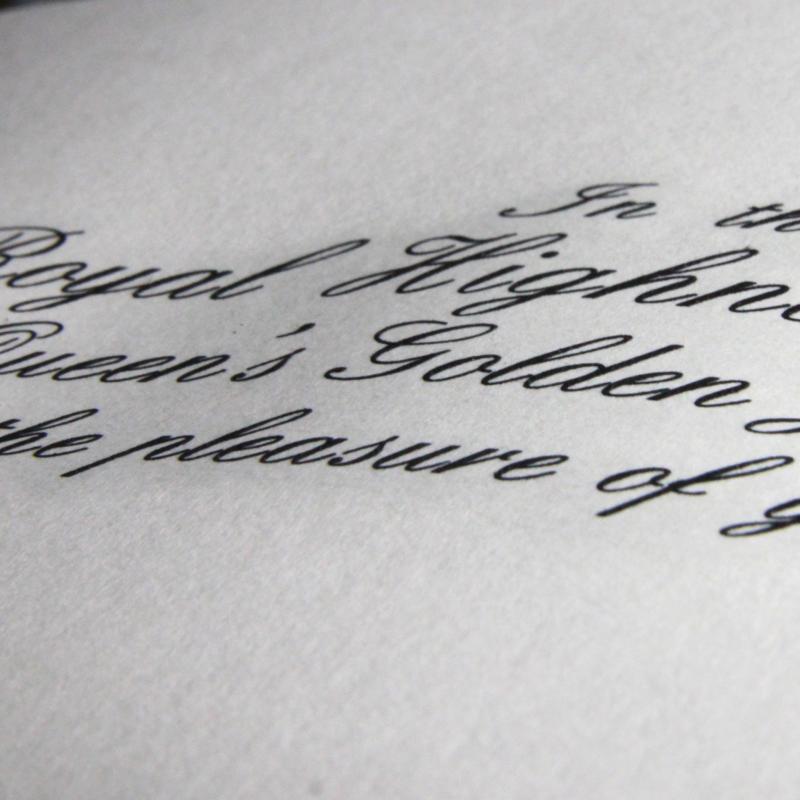 In th
Royal Highne
Queen's Golden
the pleasure of